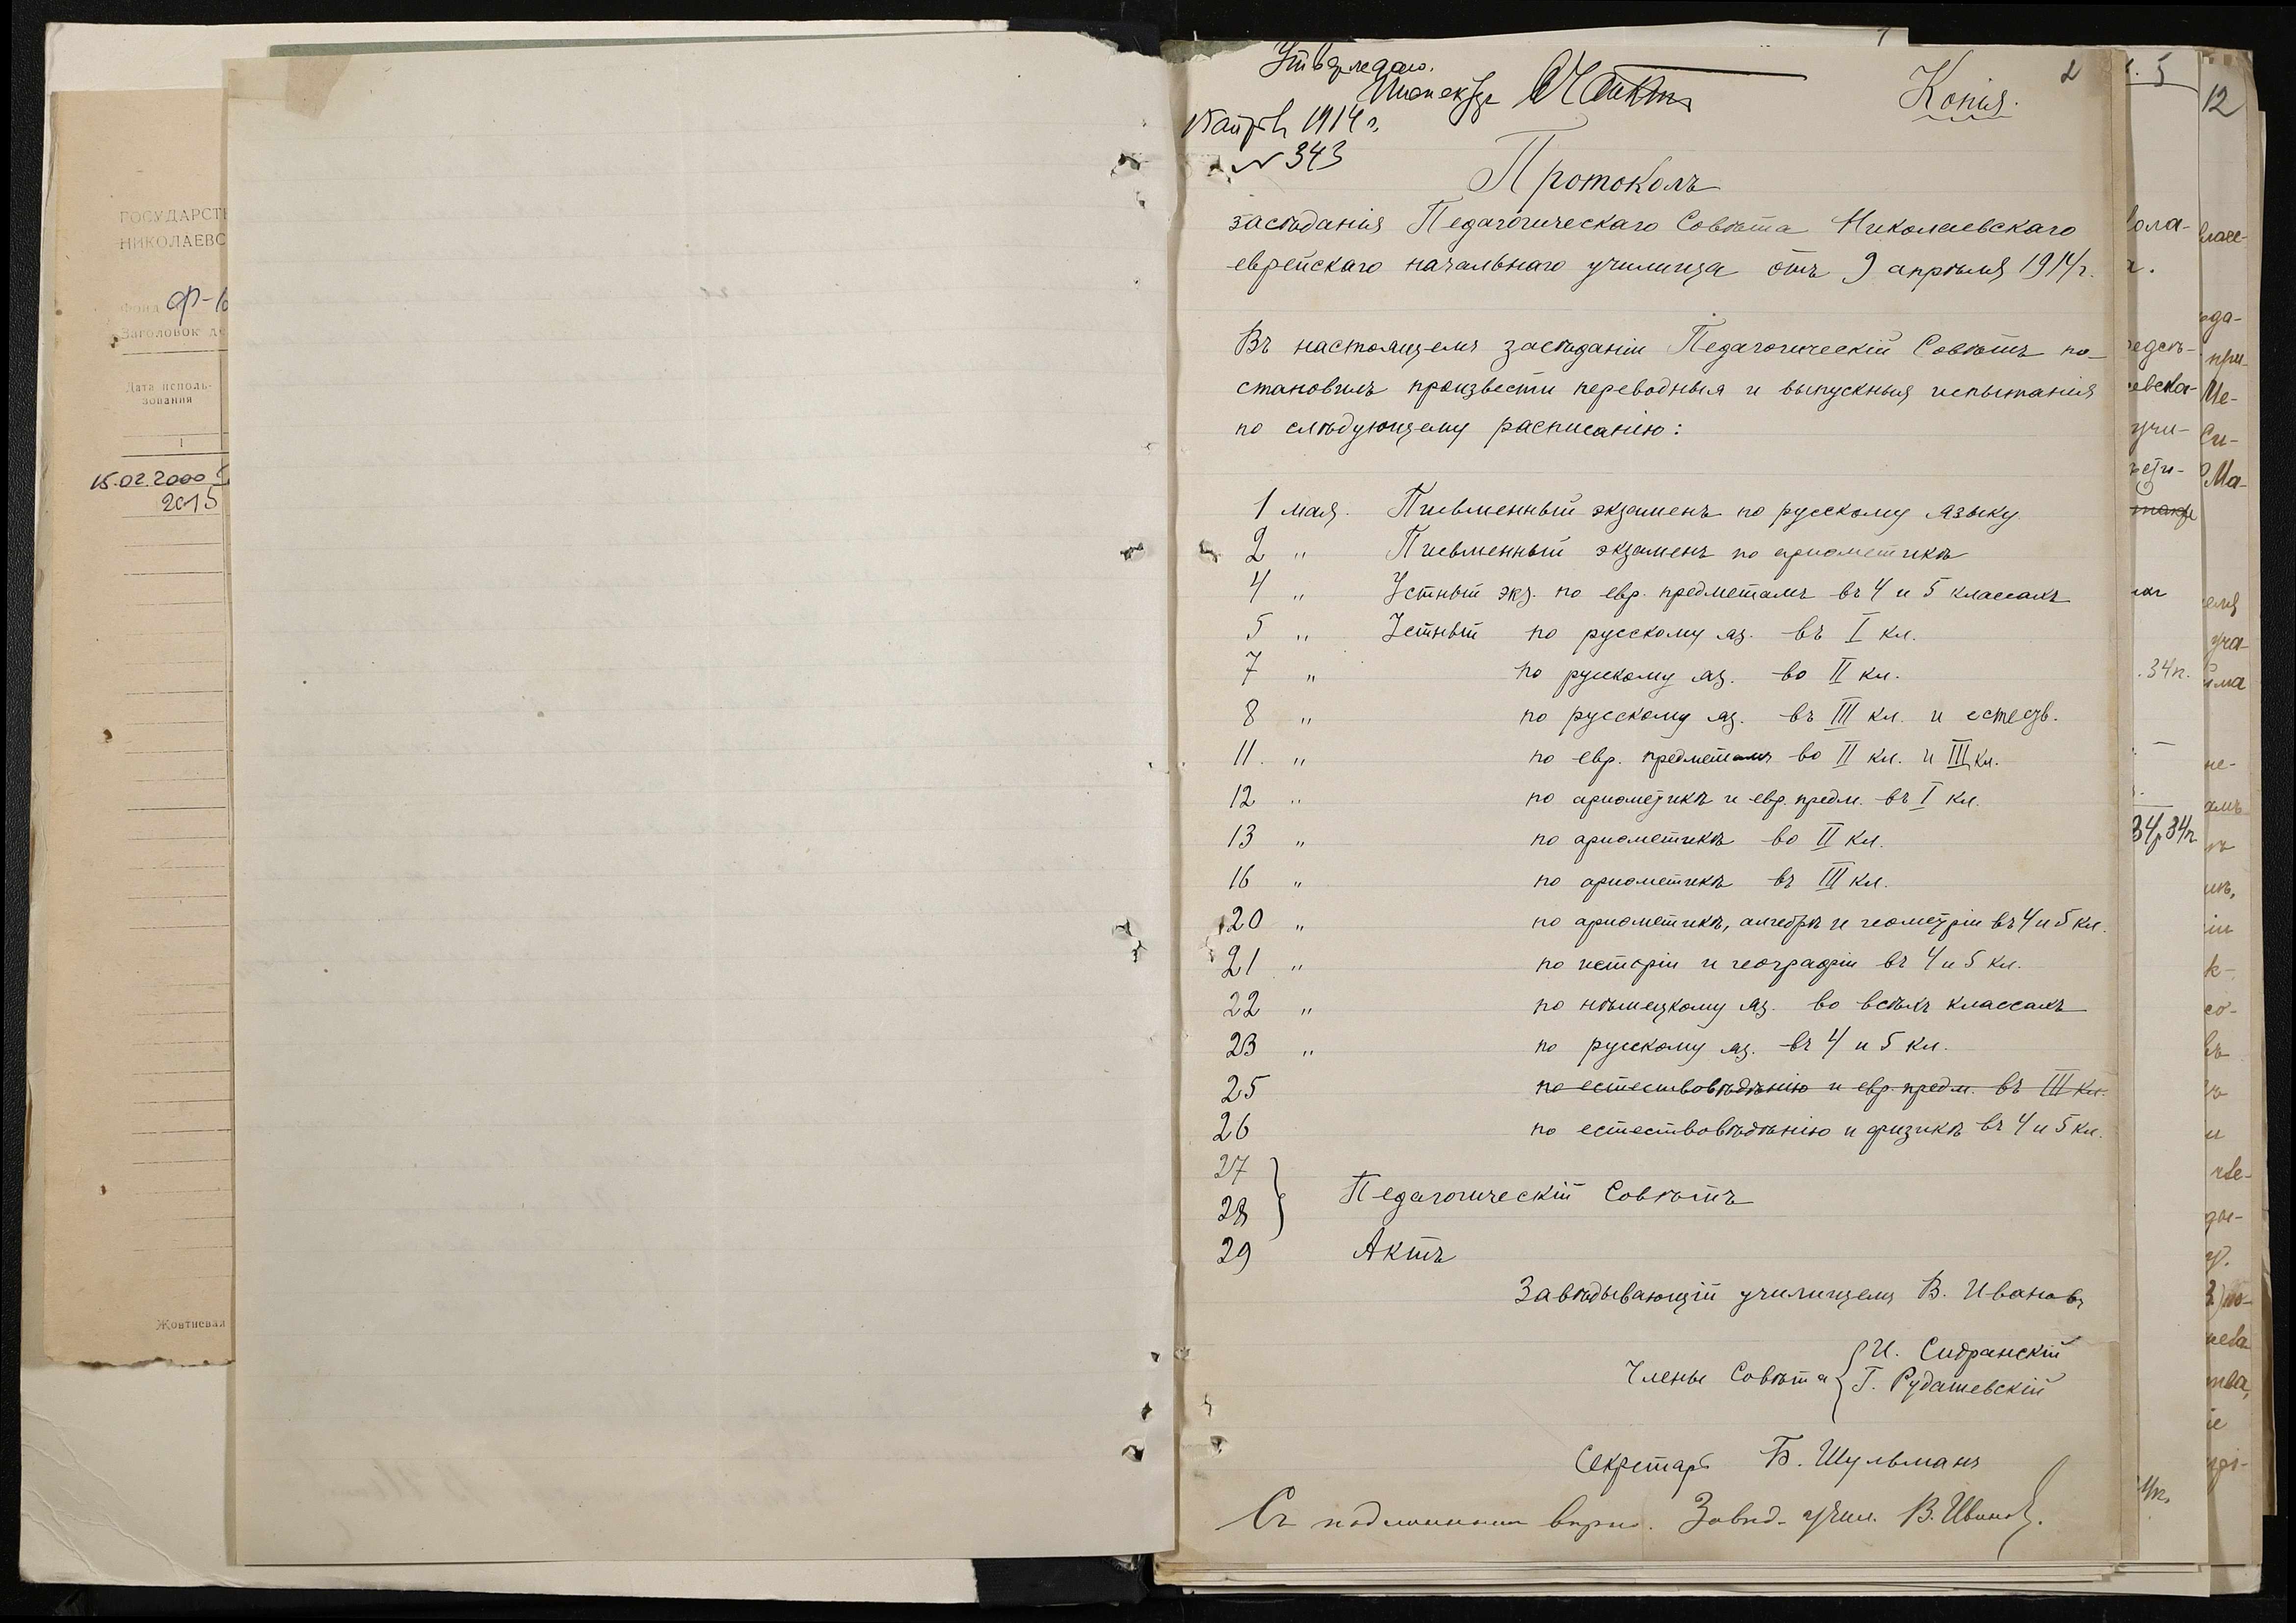 ГОСУДАРСТ
НИКОЛАЕВС
Фонд Ф-16
Заголовок де
Дата исполь-
зования
1
15.02.2000
2015
Жовтневая
Утверждаю.
Инспекторъ
15 апрѣл 1914 г.
N 343
Копія.
2
Протоколъ
засѣданія Педагогическаго Совѣта Николаевскаго
еврейскаго начальнаго училища отъ 9 апрѣля 1914 г.
Въ настоящемъ засѣданіи Педагогическій Совѣтъ по-
становилъ произвести переводныя и выпускныя испытанія
по слѣдующему расписанію:
1 мая. Письменный экзаменъ по русскому языку
2 " Письменный экзаменъ по ариѳметикѣ
4 " Устный экз. по евр. предметамъ въ 4 и 5 классахъ
5 " Устный по русскому яз. въ I кл.
7 " по русскому яз. во II кл.
8 " по русскому яз. въ III кл. и естеств.
11. " по евр. предметамъ во II кл. и III кл.
12 " по ариѳметикѣ и евр. предм. въ I кл.
13 " по ариѳметикѣ во II кл.
16 " по ариѳметикѣ въ III кл.
20 " по ариѳметикѣ, алгебрѣ и геометріи въ 4 и 5 кл.
21 " по исторіи и географіи въ 4 и 5 кл.
22 " по нѣмецкому яз. во всѣхъ классахъ
23 " по русскому яз. въ 4 и 5 кл.
25 по естествовѣдѣнію и евр. предм. въ III кл.
26 по естествовѣдѣнію и физикѣ въ 4 и 5 кл.
27
28 } Педагогическій Совѣтъ
29 Актъ
Завѣдывающій училищемъ В. Ивановъ
Члены Совѣта { И. Сидранскій
Г. Рудашевскій
Секретарь Б. Шульманъ
Съ подлиннымъ вѣрно. Завѣд. учил. В. Ивановъ.
5
12
34 к.
34 р 34 к